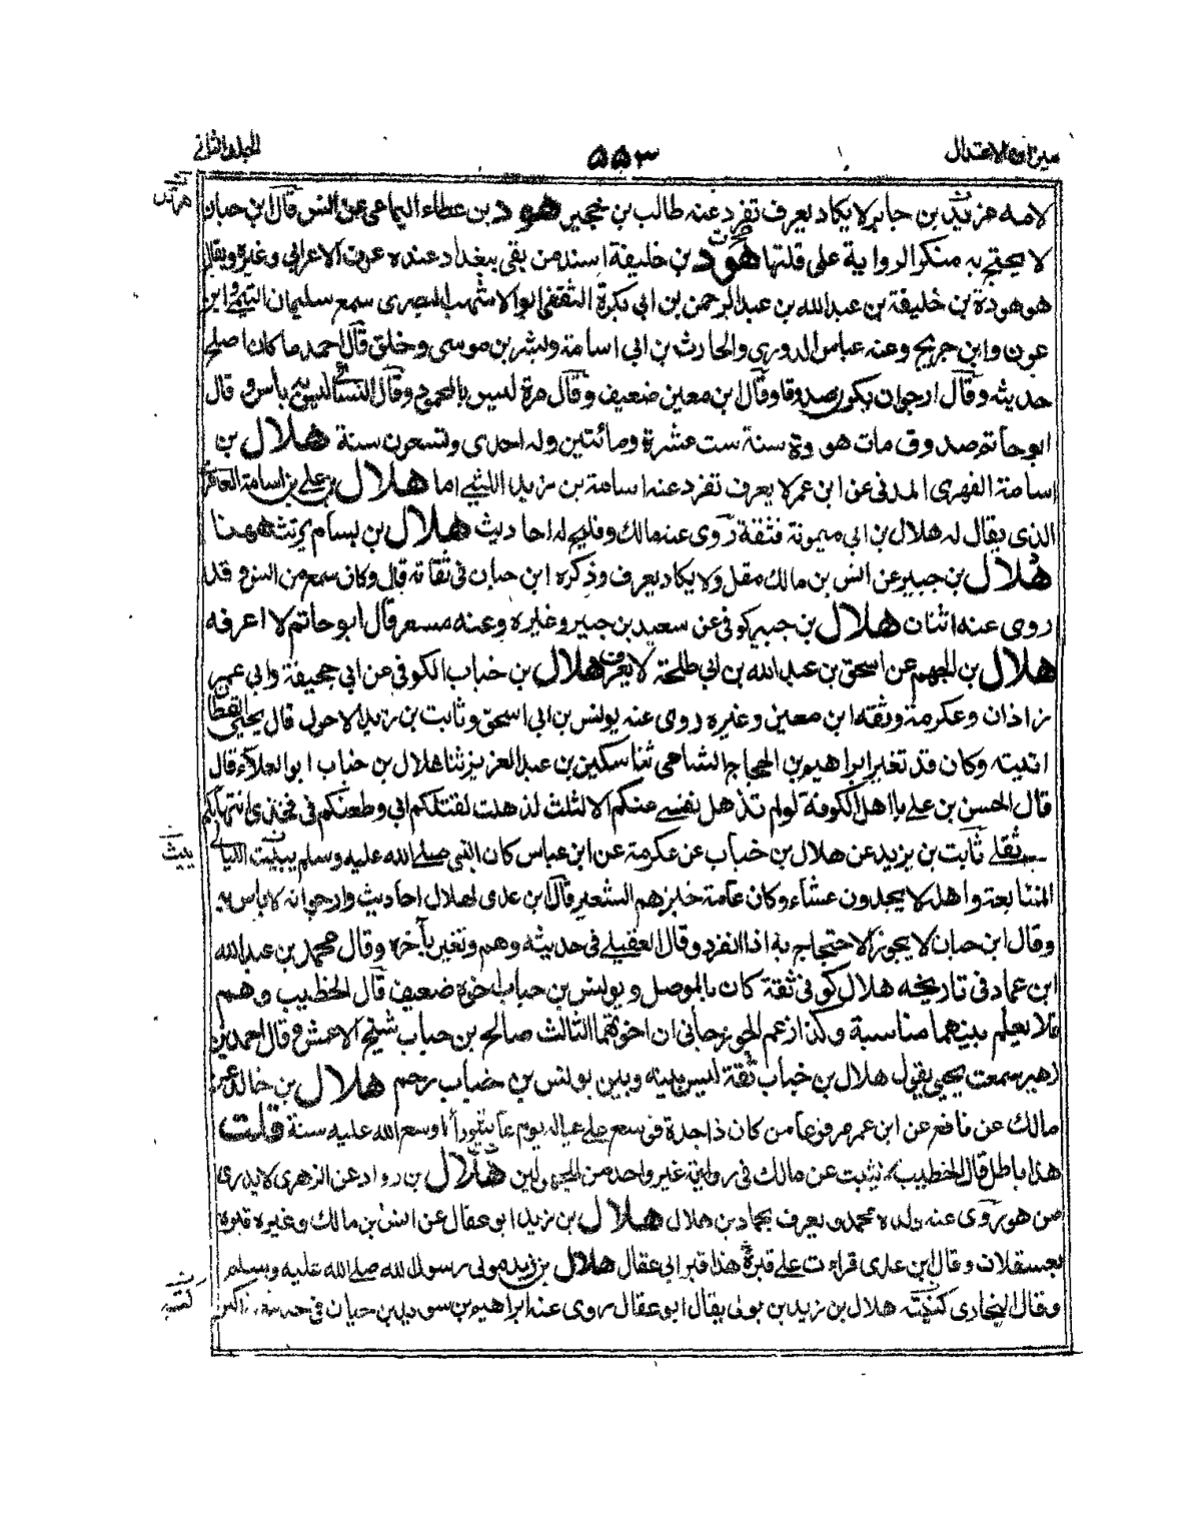 ميزان الاعتدال
٥٥٣
المجلد الثاني
لامه مزيدة بن جابر لا يكاد يعرف تفرد عنه طالب بن حجير هود بن عطاء اليمامي عن انس قال ابن حبان
لا يحتج به منكر الرواية على قلتها هوذة بن خليفة اسند من بقي ببغداد عنده عن الاعرابي وغيره ويقال
هو هوذة بن خليفة بن عبد الله بن عبد الرحمن بن ابي بكرة الثقفي ابو الاشهب البصري سمع سليمان التيمي وابن
عون وابن جريج وعنه عباس الدوري والحارث بن ابي اسامة وبشر بن موسى وخلق قال احمد ما كان اصلح
حديثه وقال ارجوان يكون صدوقا وقال ابن معين ضعيف وقال مرة ليس بالمحمود وقال النسائي ليس به باس و قال
ابو حاتم صدوق مات هوذة سنة ست عشرة ومائتين وله احدى وتسعون سنة هلال بن
اسامة الفهري المدني عن ابن عمر لا يعرف تفرد عنه اسامة بن زيد الليثي اما هلال بن علي بن اسامة العامري
الذي يقال له هلال بن ابي ميمونة فثقة روى عنه مالك وفليح له احاديث هلال بن بسام ههنا
هلال بن جبير عن انس بن مالك مقل ولا يكاد يعرف وذكره ابن حبان في ثقاته قال وكان سمع من انس و قد
روى عنه اثنان هلال بن جبير كوفي عن سعيد بن جبير وغيره وعنه مسعر قال ابو حاتم لا اعرفه
هلال بن الجهم عن اسحق بن عبد الله بن ابي طلحة لا يعرف هلال بن خباب الكوفي عن ابي جحيفة وابي عمر
زاذان وعكرمة وثقه ابن معين وغيره روى عنه يونس بن ابي اسحق وثابت بن زيد الاحول قال يحيى القطان
اتيته وكان قد تغير ابراهيم بن الحجاج الشامي ثنا سكين بن عبد العزيز ثنا هلال بن خباب ابو العلاء قال
قال الحسن بن علي يا اهل الكوفة لولم تذهل نفسي عنكم الا لثلث لذهلت لقتلكم ابي وطعنكم في فخذي وانتهابكم
ثقلي ثابت بن يزيد عن هلال بن خباب عن عكرمة عن ابن عباس كان النبي صلى الله عليه وسلم يبيت الليالي
المتتابعة واهله لا يجدون عشاء وكان عامة خبزهم الشعير قال ابن عدي لهلال احاديث وارجو انه لا باس به
وقال ابن حبان لا يجوز الاحتجاج به اذا انفرد وقال العقيلي في حديثه وهم وتغير بآخره وقال محمد بن عبد الله
ابن عماد في تاريخه هلال كوفي ثقة كان بالموصل ويونس بن خباب اخوه ضعيف قال الخطيب وهم
فلا يعلم بينهما مناسبة وكذا زعم الجوزجاني ان اخوهما الثالث صالح بن حباب شيخ الاعمش وقال احمد بن
زهير سمعت يحيى يقول هلال بن خباب ثقة ليس بينه وبين يونس بن خباب رحم هلال بن خالد عن
مالك عن نافع عن ابن عمر مرفوعا من كان ذا جدة فوسع على عياله يوم عاشوراء وسع الله عليه سنة قلت
هذا باطل قال الخطيب لا يثبت عن مالك في رواية غير واحد من المجهولين هلال بن رواد عن الزهري لا يدرى
من هو روى عنه ولده محمد ويعرف بحماد بن هلال هلال بن زيد ابو عقال عن انس بن مالك وغيره قبره
بعسقلان وقال ابن عدي قراءت على قبره هذا قبر ابي عقال هلال بن زيد مولى رسول الله صلى الله عليه وسلم
وقال البخاري كنيته هلال بن زيد بن بولى يقال ابو عقال روى عنه ابراهيم بن سويد بن حيان في حديثه مناكير